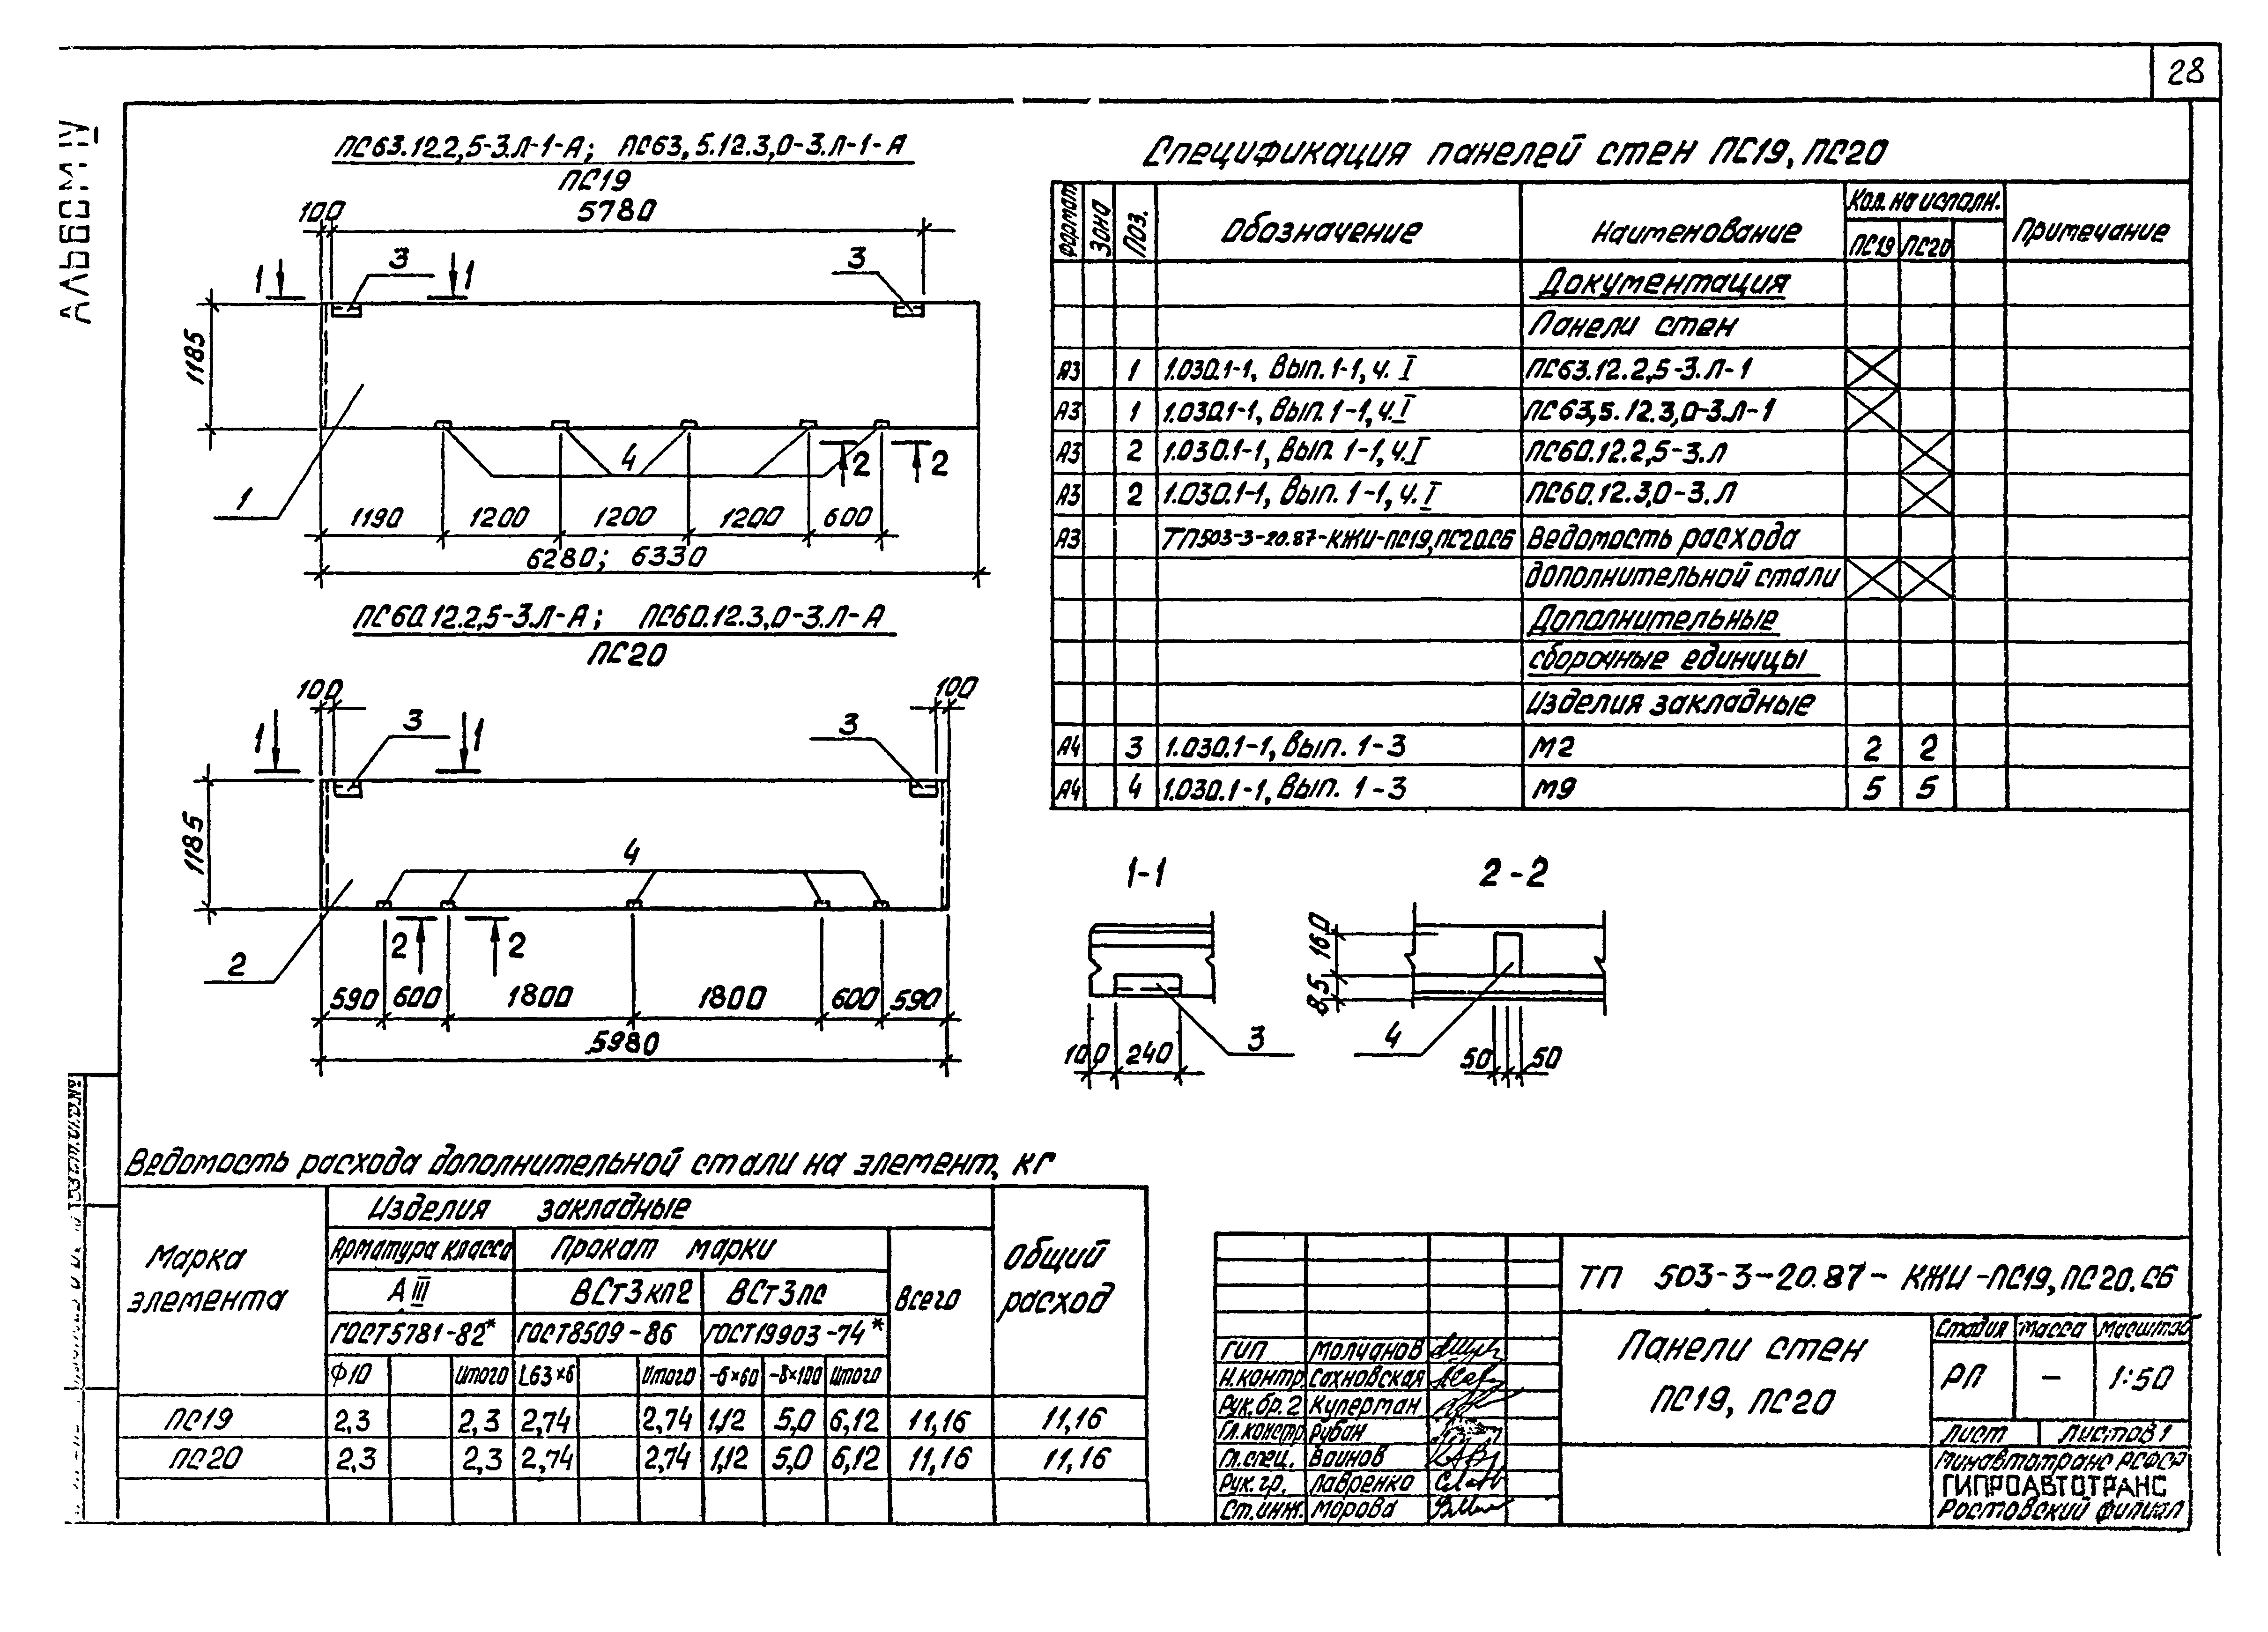 28
АЛЬБОМ IV
ПС63.12.2,5-3.Л-1-А; ПС63,5.12.3,0-3.Л-1-А
ПС19
100 5780
1 3 1 3
1185
4 2 2
1
1190 1200 1200 1200 600
6280; 6330
ПС60.12.2,5-3.Л-А; ПС60.12.3,0-3.Л-А
ПС20
100 100
1 3 1 3
1185
4
2 2
2
590 600 1800 1800 600 590
5980
Спецификация панелей стен ПС19, ПС20
Формат Зона Поз. Обозначение Наименование Кол. на исполн. Примечание
ПС19 ПС20
Документация
Панели стен
А3 1 1.030.1-1, Вып. 1-1, ч. I ПС63.12.2,5-3.Л-1
А3 1 1.030.1-1, Вып. 1-1, ч. I ПС63,5.12.3,0-3.Л-1
А3 2 1.030.1-1, Вып. 1-1, ч. I ПС60.12.2,5-3.Л
А3 2 1.030.1-1, Вып. 1-1, ч. I ПС60.12.3,0-3.Л
А3 ТП503-3-20.87-КЖИ-ПС19,ПС20.СБ Ведомость расхода
дополнительной стали
Дополнительные
сборочные единицы
Изделия закладные
А4 3 1.030.1-1, Вып. 1-3 М2 2 2
А4 4 1.030.1-1, Вып. 1-3 М9 5 5
1-1
100 240
3
2-2
160
8,5
4
50 50
Ведомость расхода дополнительной стали на элемент, кг
Марка элемента
Изделия закладные
Общий расход
Арматура класса Прокат марки Всего
А III ВСт3кп2 ВСт3пс
ГОСТ5781-82* ГОСТ8509-86 ГОСТ19903-74*
Ф10 Итого L63×6 Итого -6×60 -8×100 Итого
ПС19 2,3 2,3 2,74 2,74 1,12 5,0 6,12 11,16 11,16
ПС20 2,3 2,3 2,74 2,74 1,12 5,0 6,12 11,16 11,16
ТП 503-3-20.87- КЖИ-ПС19, ПС20.СБ
Панели стен
ПС19, ПС20
Стадия Масса Масштаб
РП - 1:50
Лист Листов 1
Минавтотранс РСФСР
ГИПРОАВТОТРАНС
Ростовский филиал
ГИП Молчанов
Н.контр. Сахновская
Рук.бр.2 Куперман
Гл.констр. Рубан
Гл.спец. Воинов
Рук.гр. Лавренко
Ст.инж. Морова